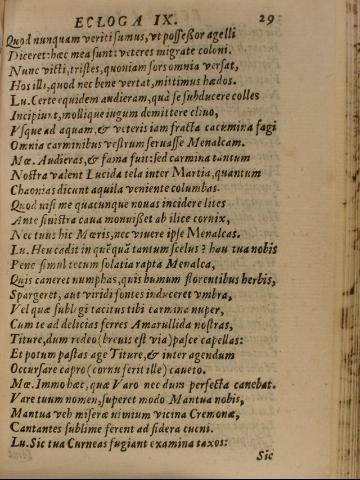 ECLOGA IX. 29
Quod nunquam veriti sumus, vt possessor agelli
Diceret: hæc mea sunt: veteres migrate coloni.
Nunc victi, tristes, quoniam sors omnia versat,
Hos illi, quod nec bene vertat, mittimus hædos.
Lu. Certe equidem audieram, quà se subducere colles
Incipiunt, mollique iugum demittere cliuo,
Vsque ad aquam, & veteris iam fracta cacumina fagi
Omnia carminibus vestrum seruasse Menalcam.
Mœ. Audieras, & fama fuit: sed carmina tantum
Nostra valent Lucida tela inter Martia, quantum
Chaonias dicunt aquila veniente columbas.
Quod nisi me quacunque nouas incidere lites
Ante sinistra caua monuisset ab ilice cornix,
Nec tuus hic Mœris, nec viuere ipse Menalcas.
Lu. Heu cadit in quēquā tantum scelus? hau tua nobis
Pene simul tecum solatia rapta Menalca,
Quis caneret numphas, quis humum florentibus herbis,
Spargeret, aut viridi fontes induceret vmbra,
Vel quæ sublegi tacitus tibi carmina nuper,
Cum te ad delicias ferres Amarullida nostras,
Titure, dum redeo (breuis est via) pasce capellas:
Et potum pastas age Titure, & inter agendum
Occursare capro (cornu ferit ille) caueto.
Mœ. Immo hæc, quæ Varo nec dum perfecta canebat.
Vare tuum nomen, superet modo Mantua nobis,
Mantua veh miseræ nimium vicina Cremonæ,
Cantantes sublime ferent ad sidera cucni.
Lu. Sic tua Curneas fugiant examina taxos:
Sic